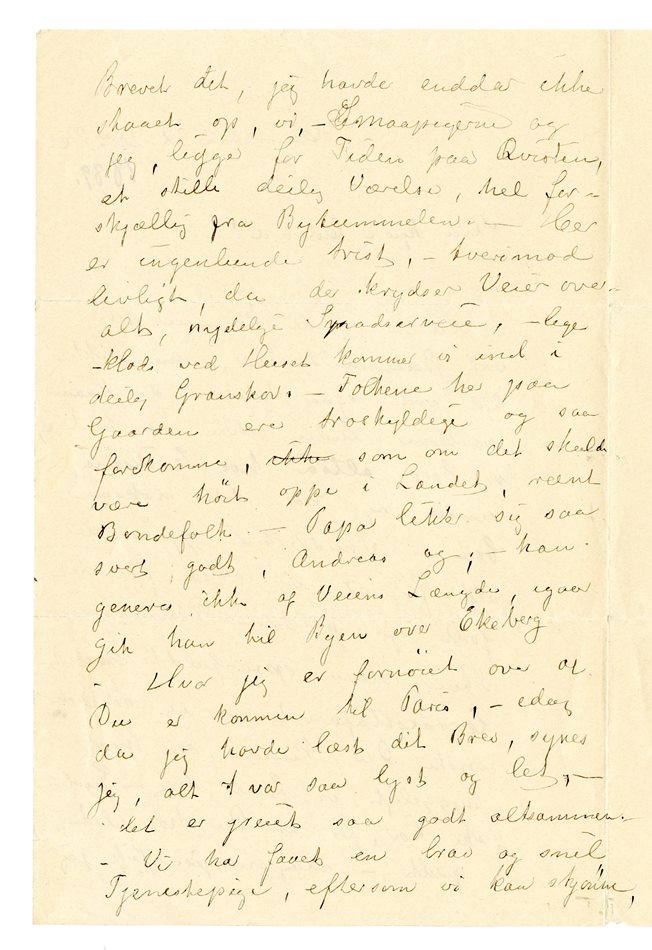 Brevet dit, jeg havde endda ikke
staaet op, vi, – Smaapigerne og
jeg, ligge for Tiden paa Qvisten,
et stille deilig Værelse, hel for-
skjællig fra Bytummelen. – Her
er ingenlunde trist, – tverimod
livligt, da der krydser Veier over-
alt, nydelige Spadserveie, – lige
-klods ved Huset kommer vi ind i
deilig Granskov. – Folkene her paa
Gaarden ere troskyldige og saa
forekomne, ikke som om det skulde
være høit oppe i Landet, reent
Bondefolk. – Papa liker sig saa
svert godt, Andreas og, – han
generes ikke af Veiens Længde, igaar
gik han til Byen over Ekeberg
– Hvor jeg er fornøiet over at
Du er kommen til Paris, – idag
da jeg havde læst dit Brev, synes
jeg, alt var saa lyst og let, –
det er greiet saa godt altsammen. –
– Vi har faaet en brav og snil
Tjenestepige, eftersom vi kan skjønne,